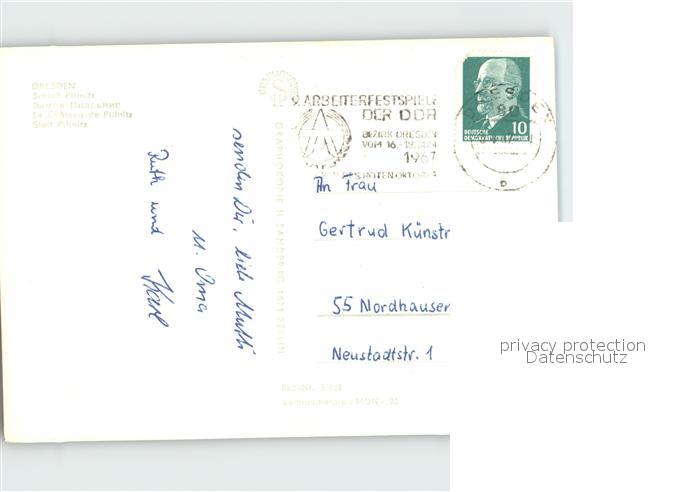 DRESDEN
Schloß Pillnitz
Le Château de Pillnitz
Slott Pillnitz
9. ARBEITERFESTSPIELE
DER DDR
BEZIRK DRESDEN
VOM 16.-18. JUNI
1967
ROTEN OKTOBER
DRESDEN
DEUTSCHE
DEMOKRATISCHE REPUBLIK
10
GRAPHOKOPIE H. SANDER KG 1071 BERLIN
senden Dir, liebe Mutti
u. Oma
Ruth und Karl
An Frau
Gertrud Künstr
55 Nordhausen
Neustadtstr. 1
Best-Nr.
privacy protection
Datenschutz